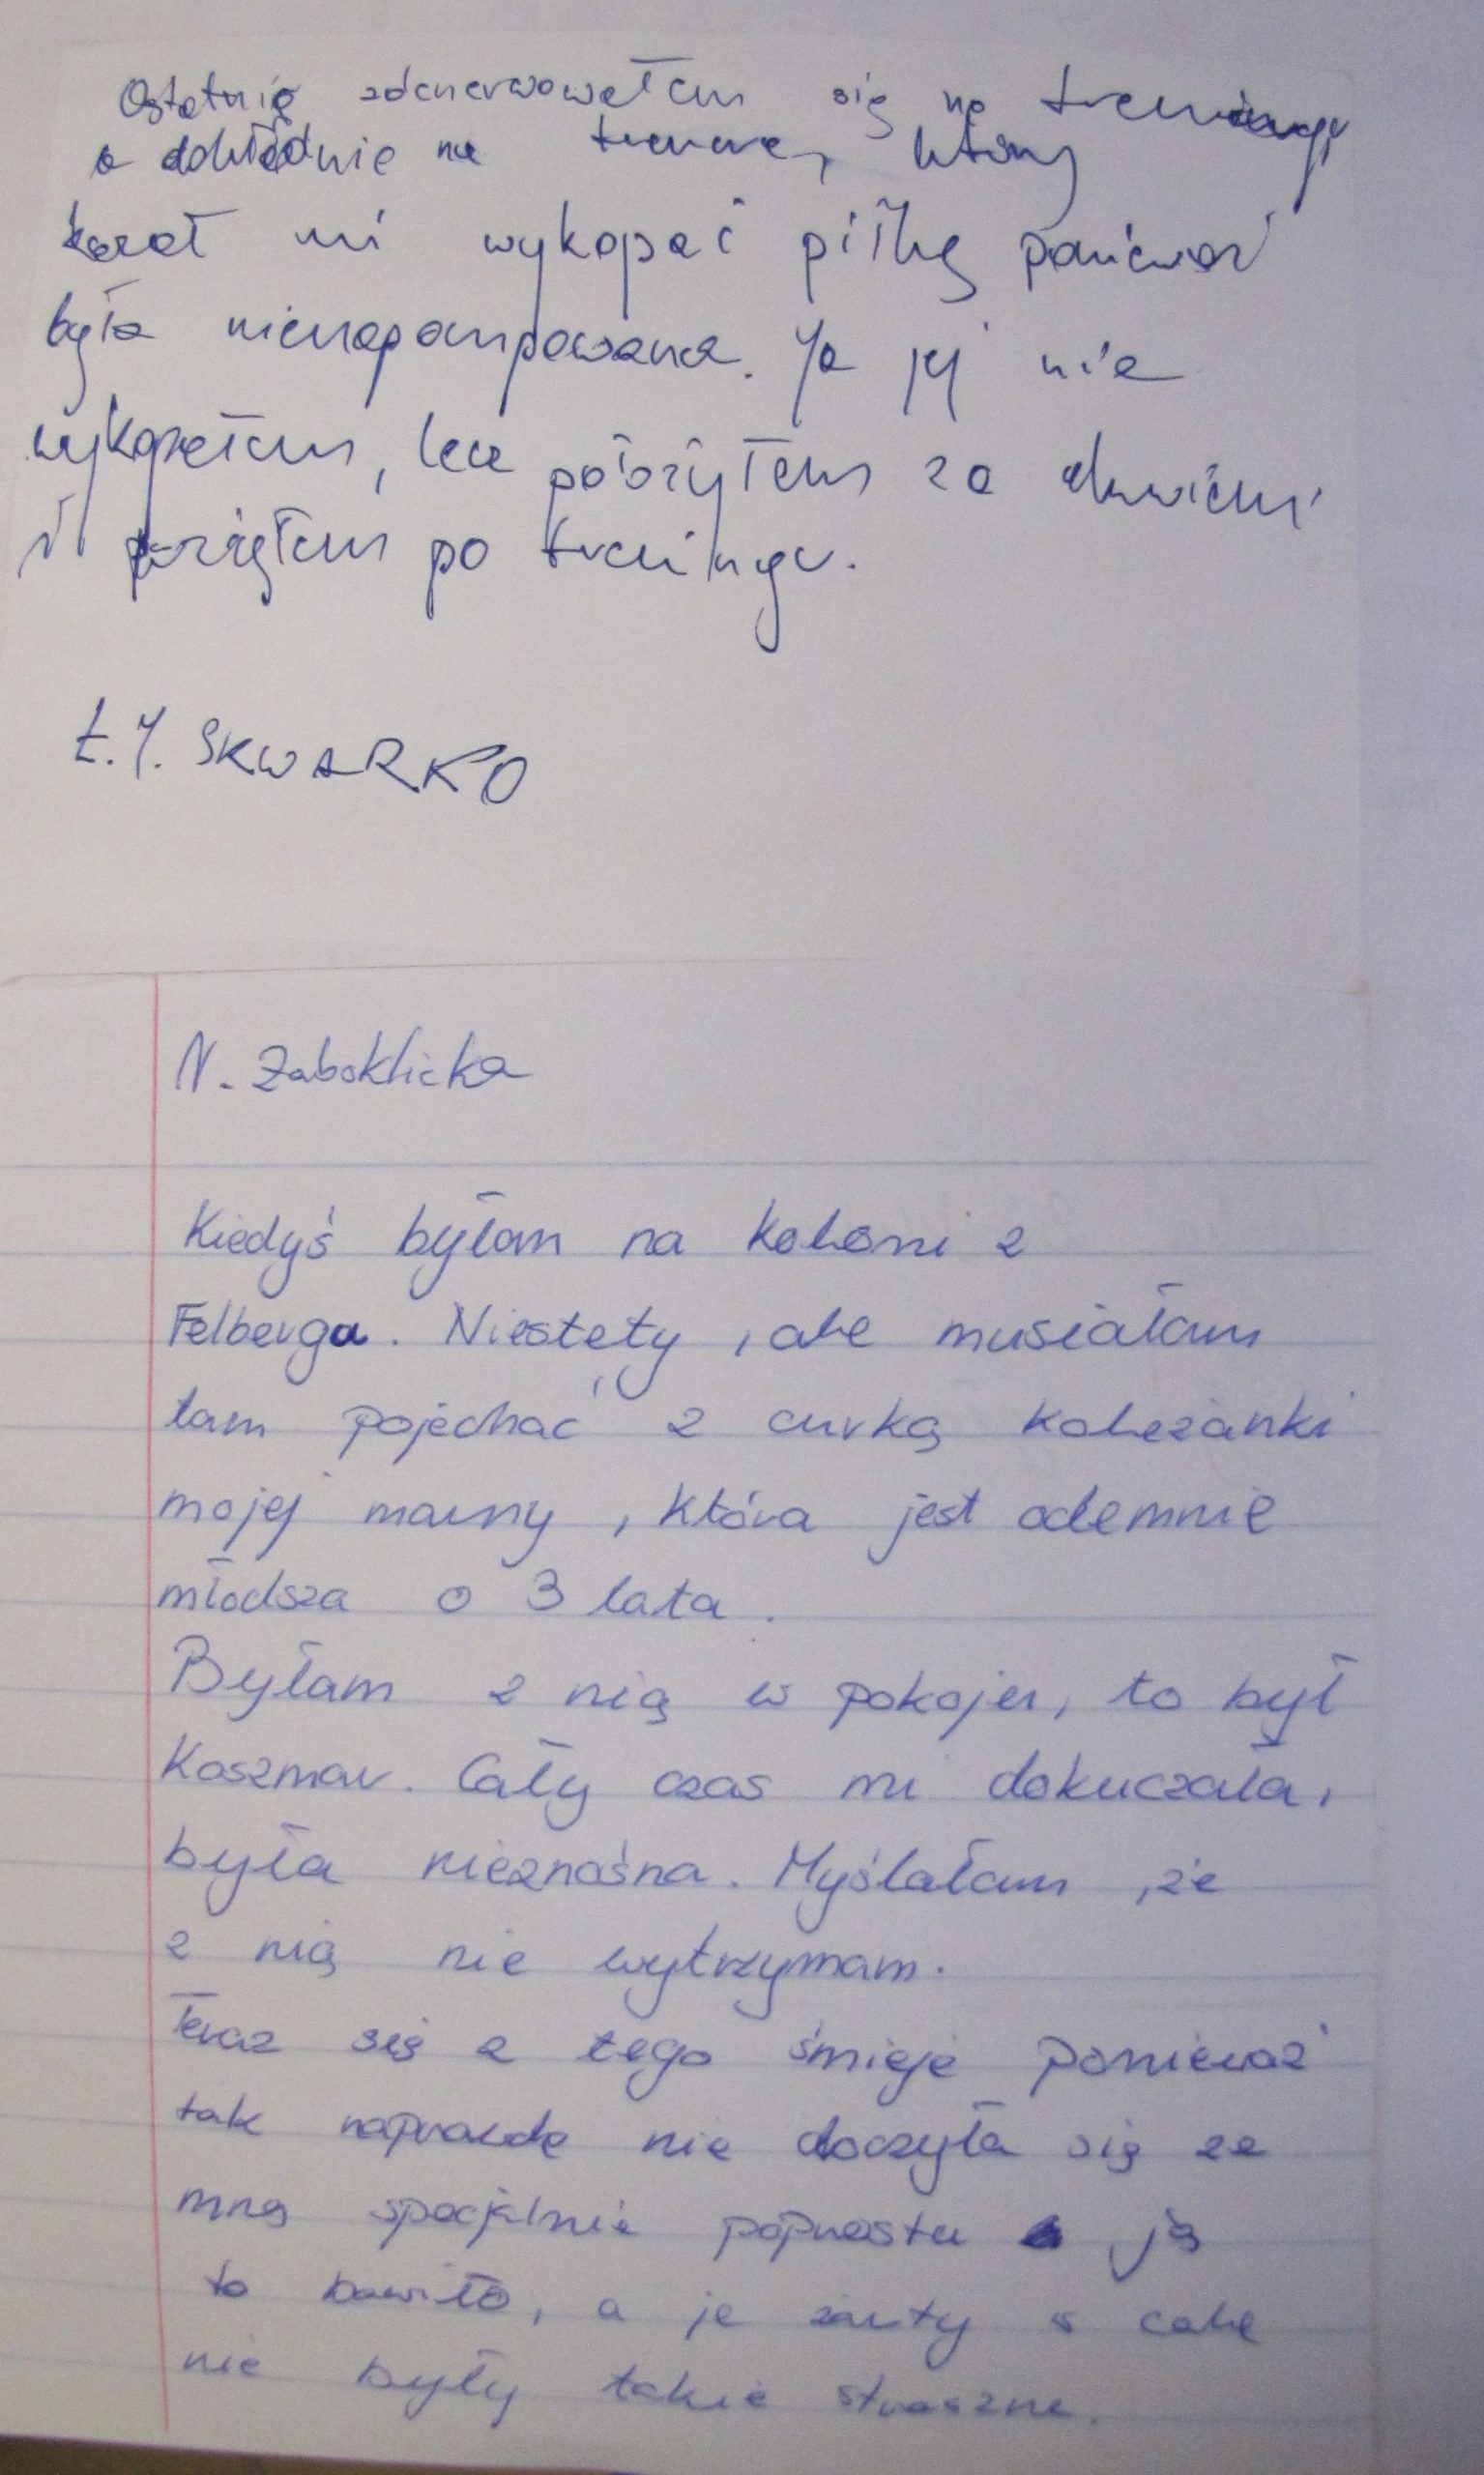 Ostatnio zdenerwowałem się na treningu
a dokładnie na trenera, który
kazał mi wykopać piłkę ponieważ
była nienapompowana. Ja jej nie
wykopałem, lecz położyłem za drzwiami
i wziąłem po treningu.
Ł.J. SKWARKO
N. Zaboklicka
Kiedyś byłam na koloni z
Felberga. Niestety, ale musiałam
tam pojechać z curką koleżanki
mojej mamy, która jest odemnie
młodsza o 3 lata.
Byłam z nią w pokoju, to był
koszmar. Cały czas mi dokuczała,
była nieznośna. Myślałam, że
z nią nie wytrzymam.
Teraz się z tego śmieje ponieważ
tak naprawdę nie droczyła się ze
mną specjalnie poprostu ją
to bawiło, a je żarty w cale
nie były takie straszne.